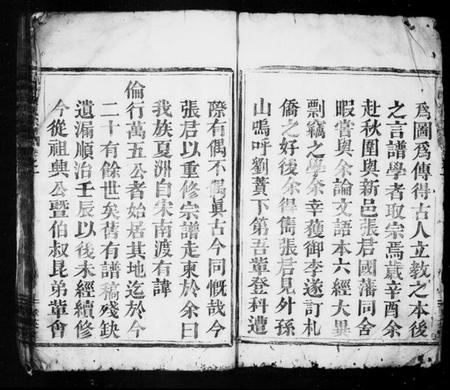 為圖為傳得古人立教之本後
之言譜學者取宗焉歲辛酉余
赴秋圍與新邑張君國藩同舍
暇嘗與余論文語本六經大異
剽竊之學余幸獲御李遂訂札
僑之好後余得雋張君見外孫
山嗚呼劉蕡下第吾輩登科遭
際有偶不偶眞古今同慨哉今
張君以重修宗譜走東於余曰
我族夏洲自宋南渡有諱
倫行萬五公者始居其地迄於今
二十有餘世矣舊有譜稿殘缺
遺漏順治壬辰以後未經續修
今從祖興公暨伯叔昆弟輩會